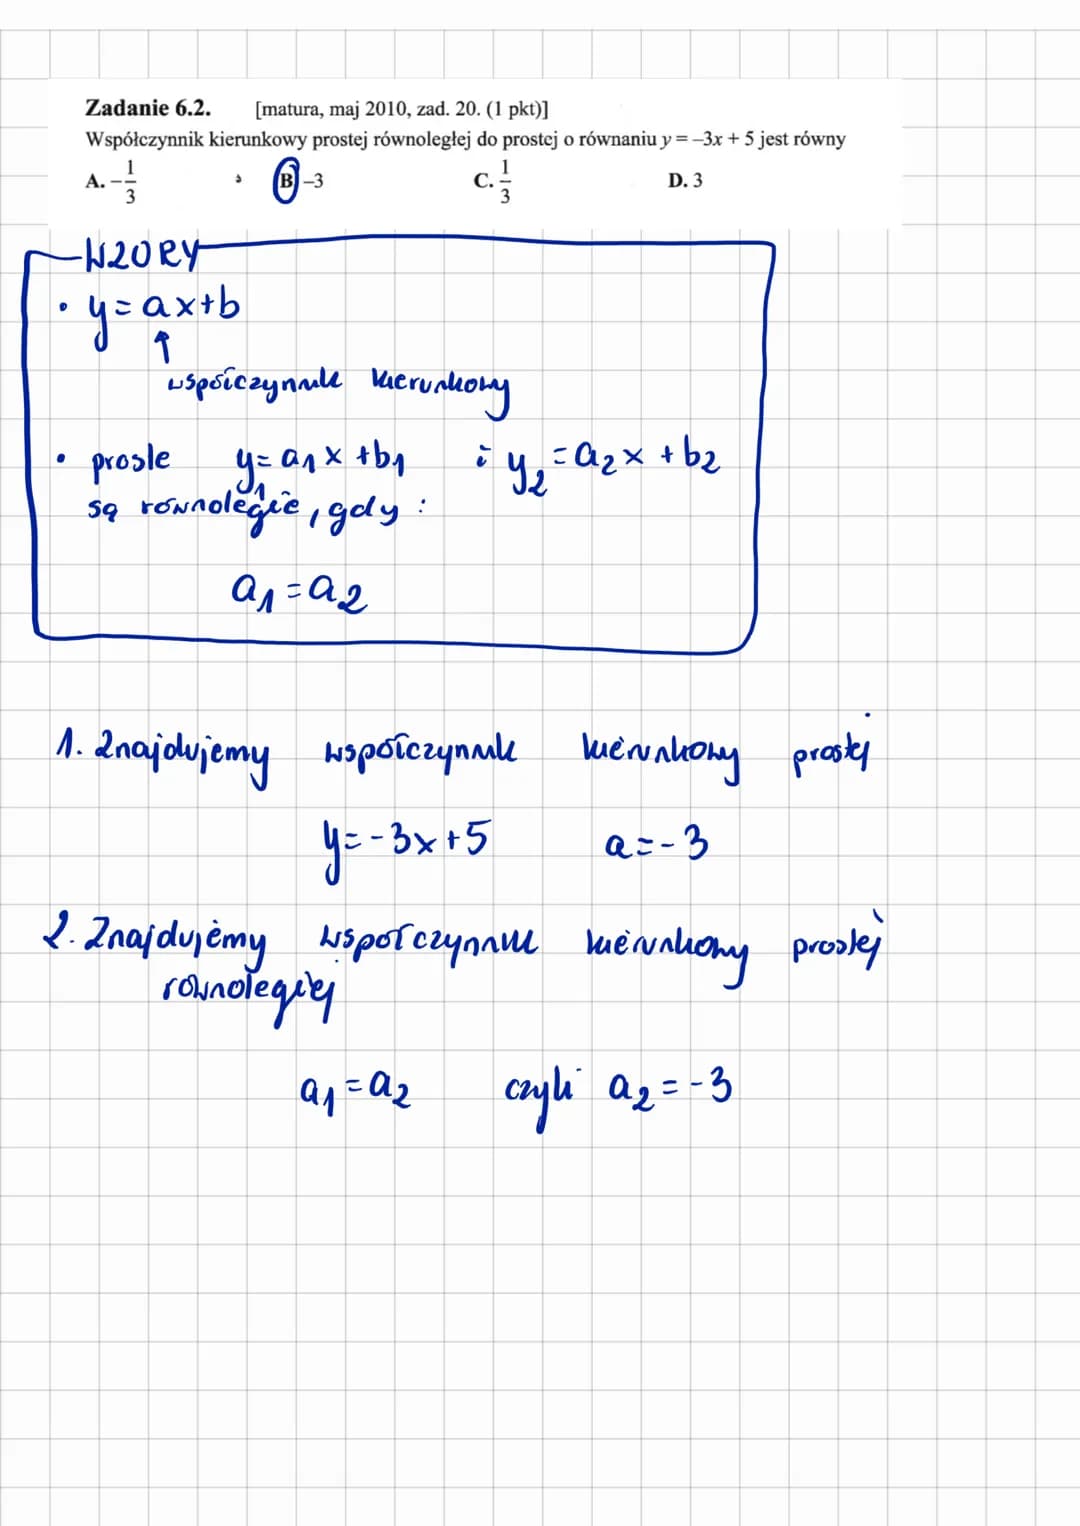 Zadanie 6.2. [matura, maj 2010, zad. 20. (1 pkt)]
Współczynnik kierunkowy prostej równoległej do prostej o równaniu y = –3x + 5 jest równy
A. –1/3 B. –3 C. 1/3 D. 3
WZORY
• y = ax+b
↑
współczynnik kierunkowy
• proste y₁= a₁x +b₁ i y₂ = a₂x + b₂
są równoległe, gdy :
a₁ = a₂
1. Znajdujemy współczynnik kierunkowy prostej
y = -3x +5 a = -3
2. Znajdujemy współczynnik kierunkowy prostej
równoległej
a₁ = a₂ czyli a₂ = -3